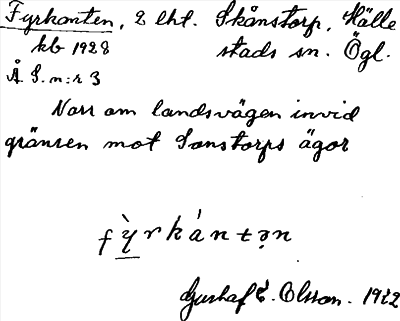 Fyrkanten, 2 lht. Skånstorp, Hälle
kb 1928 stads sn. Ögl.
Å S.n:r 3
Norr om landsvägen invid
gränsen mot Sonstorps ägor
fy̌rkántən
Gustaf E. Olsson. 1932